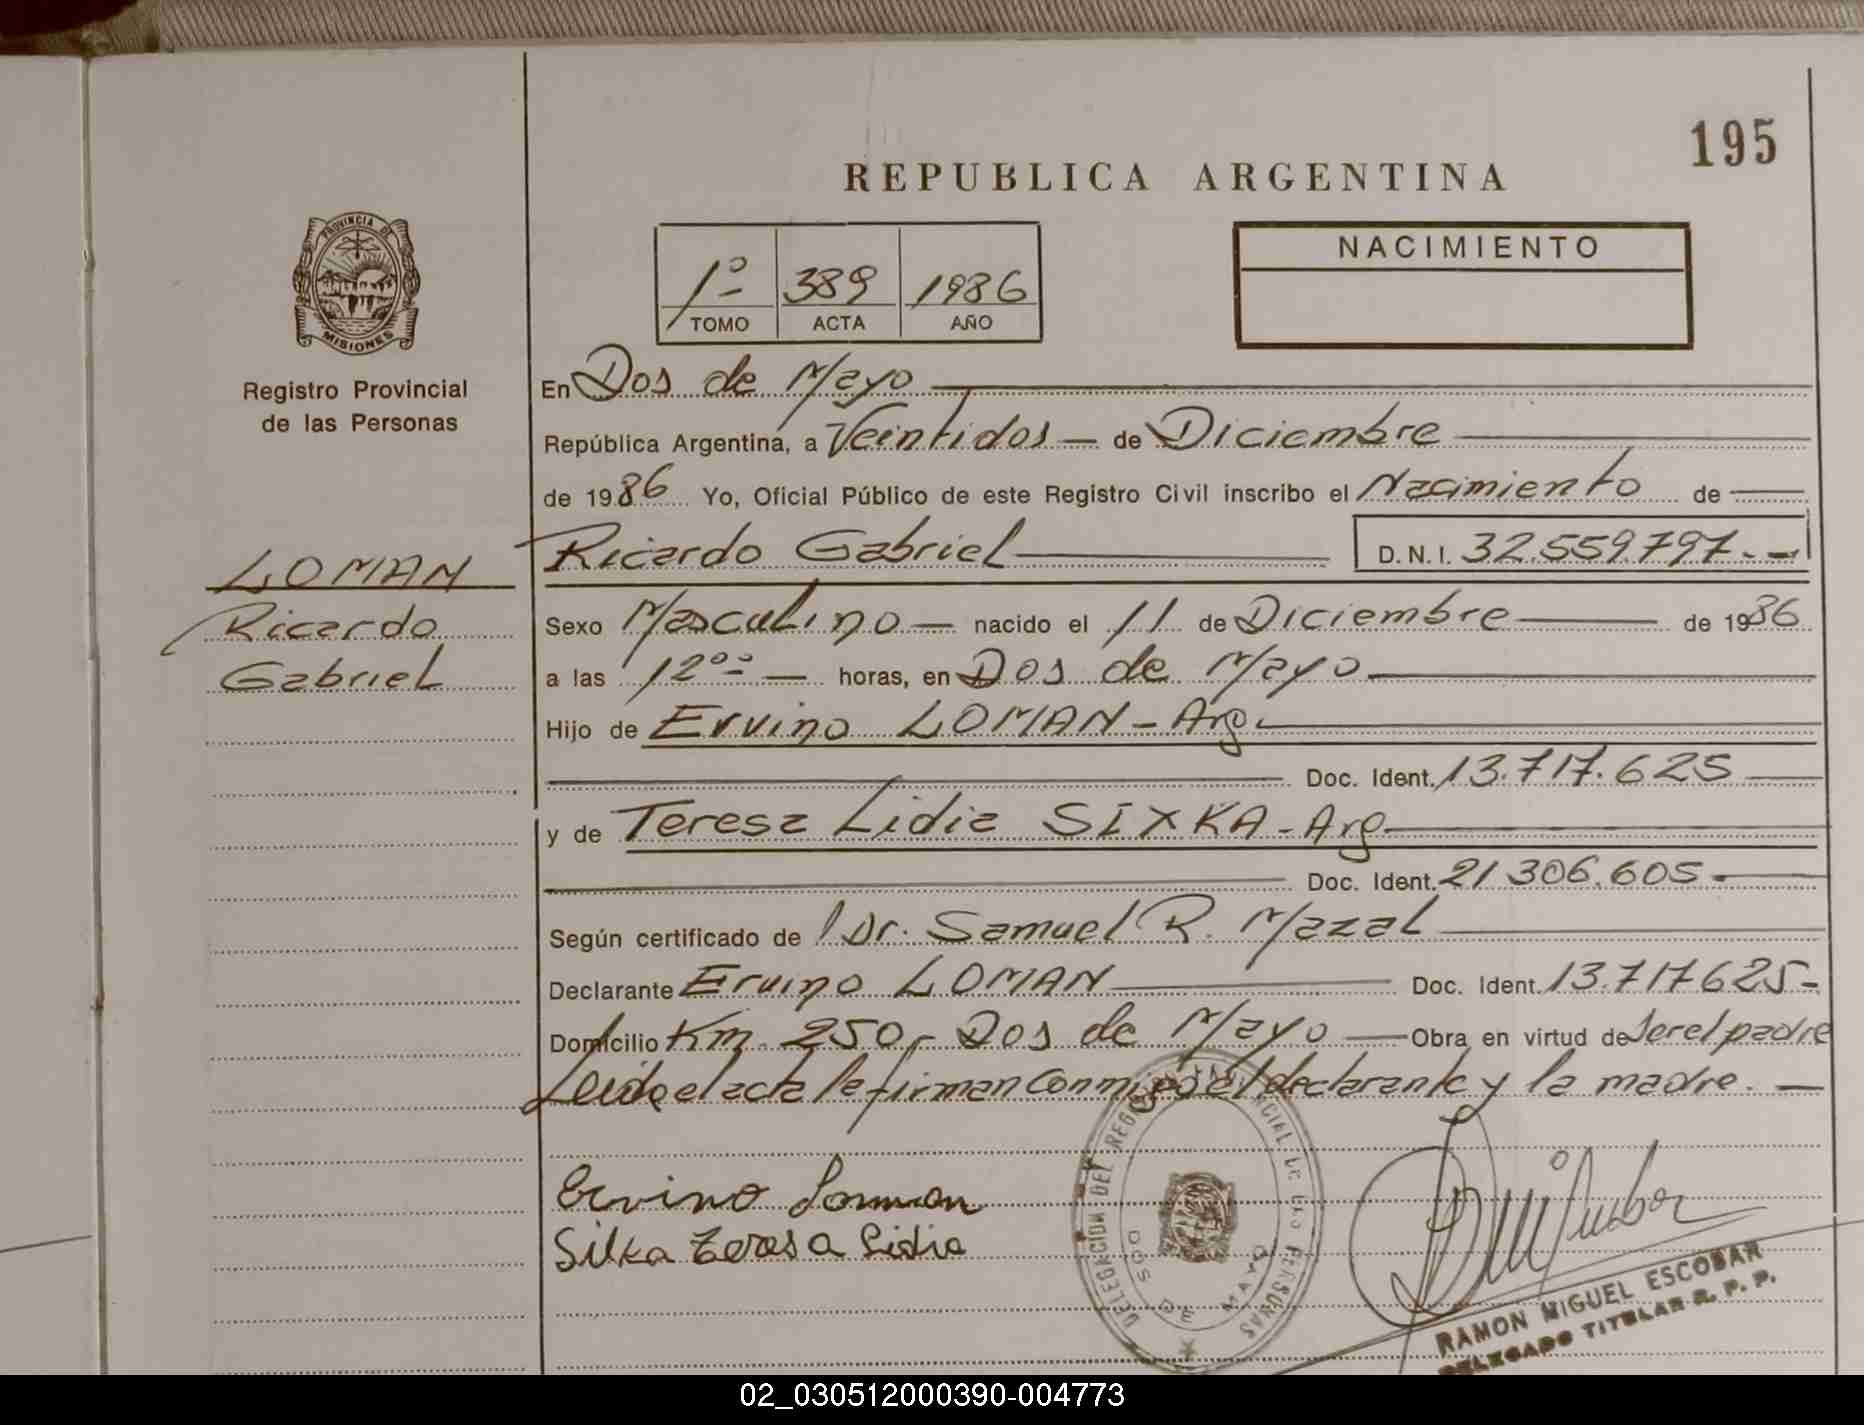 195
REPUBLICA ARGENTINA
PROVINCIA DE
MISIONES
Registro Provincial
de las Personas
1º 389 1986
TOMO ACTA AÑO
NACIMIENTO
En Dos de Mayo
República Argentina, a Veintidos de Diciembre
de 1986 Yo, Oficial Público de este Registro Civil inscribo el Nacimiento de
Ricardo Gabriel D.N.I. 32.559.797.-
LOMAN
Ricardo
Gabriel
Sexo Masculino nacido el 11 de Diciembre de 1986
a las 12ºº horas, en Dos de Mayo
Hijo de Ervino LOMAN - Arg.
Doc. Ident. 13.717.625
y de Teresa Lidia SIXKA - Arg
Doc. Ident. 21306.605.-
Según certificado de Dr. Samuel R. Mazal
Declarante Ervino LOMAN Doc. Ident. 13.717625-
Domicilio Km. 250,- Dos de Mayo Obra en virtud de Ser el padre
Leida el acta la firman conmigo el declarante y la madre. —
Ervino Loman
Silka Teresa Lidia
DELEGACION DEL REGISTRO PROVINCIAL DE LAS PERSONAS
DOS DE MAYO
RAMON MIGUEL ESCOBAR
DELEGADO TITULAR R. P. P.
02_030512000390-004773